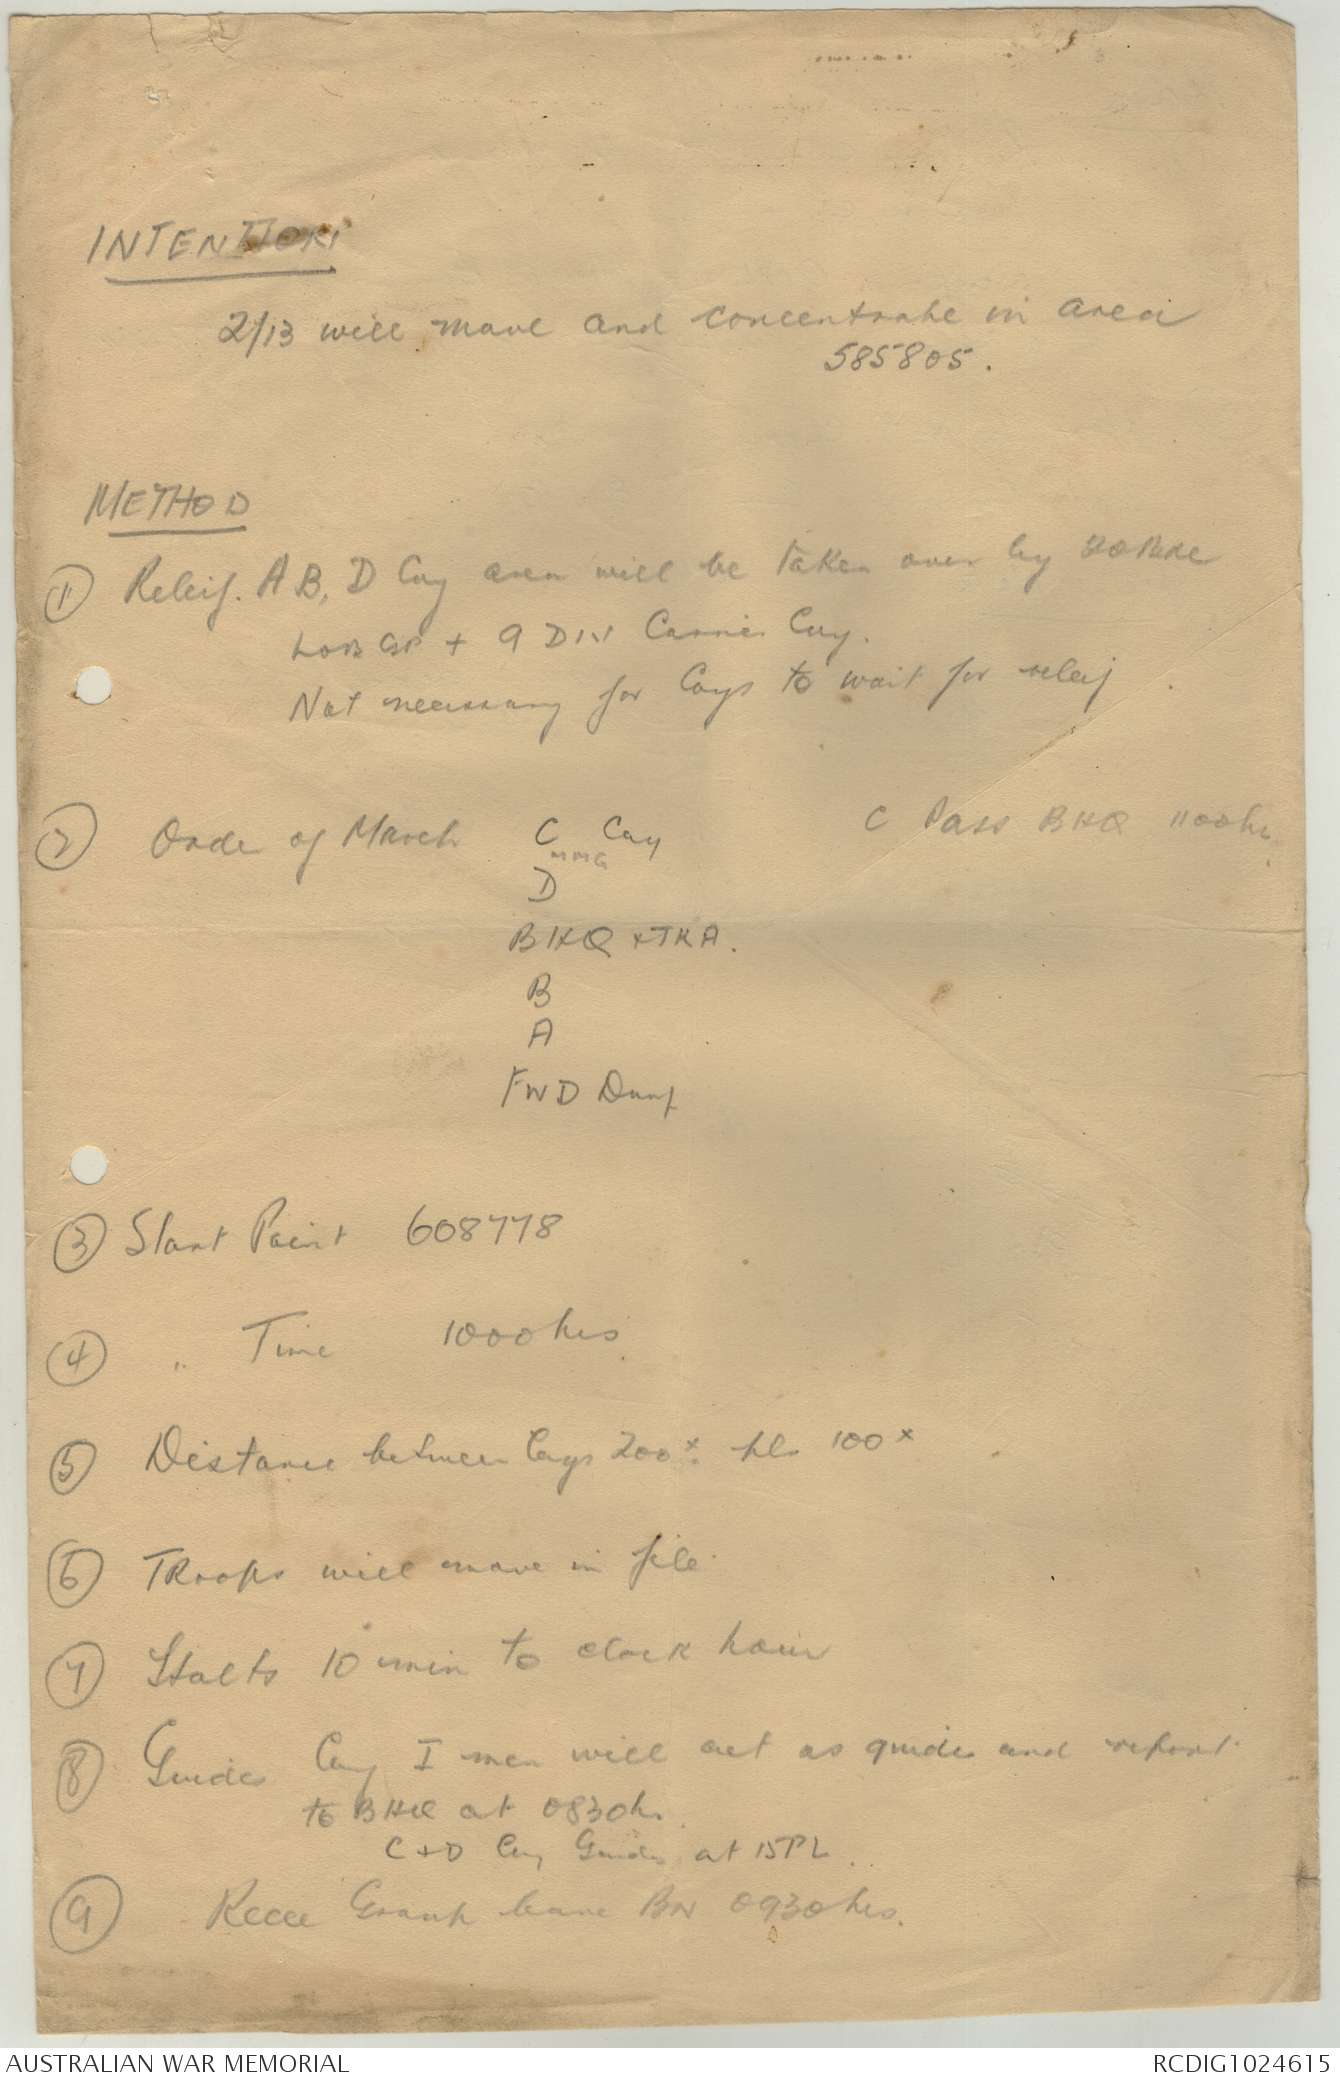 INTENTION
2/13 will move and concentrate in area
585805.
METHOD
① Releif. A B, D Coy area will be taken over by 20 Bde
LOB GP + 9 DIV Carrier Coy.
Not necessary for Coys to wait for releif
② Order of March C Coy C Pass BHQ 1100hrs
MMG
D
BHQ + TKA.
B
A
FWD Dump
③ Start Point 608778
④ " Time 1000hrs
⑤ Distance between Coys 200x. pls 100x
⑥ TRoops will move in file
⑦ Halts 10 min to clock hour
⑧ Guides Coy I men will act as guides and report
to BHQ at 0830hr.
C + D Coy Guides at 15PL.
⑨ Recce Group leave BN 0930hrs.
AUSTRALIAN WAR MEMORIAL
RCDIG1024615